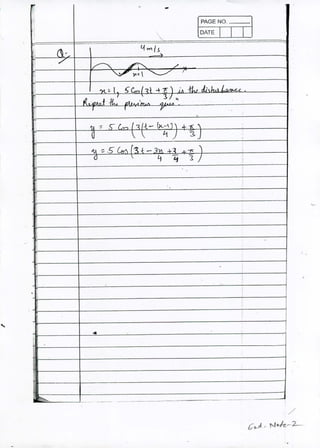 PAGE NO.
DATE
Q.
4 m/s
x=1
x=1, 5 Cos(3t + π/3) is the disturbance.
Repeat the previous ques."
y = 5 Cos(3(t - (x-1)/4) + π/3)
y = 5 Cos(3t - 3x/4 + 3/4 + π/3)
End. Note-2